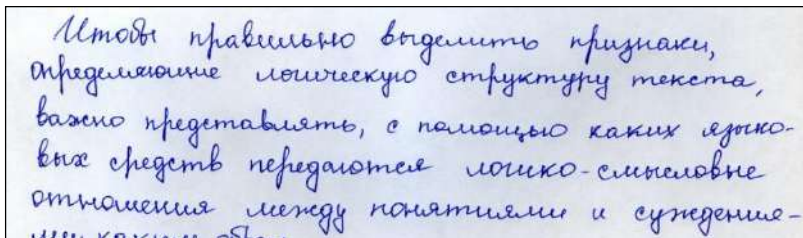 Чтобы правильно выделить признаки,
определяющие логическую структуру текста,
важно представлять, с помощью каких языко-
вых средств передаются логико-смысловые
отношения между понятиями и суждения-
ми каким